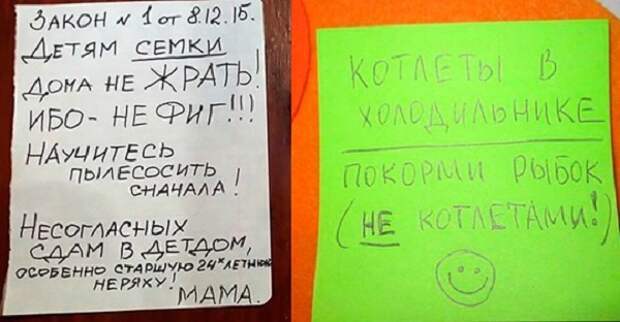 ЗАКОН N 1 от 8.12.15.
ДЕТЯМ СЕМКИ
ДОМА НЕ ЖРАТЬ!
ИБО - НЕ ФИГ!!!
НАУЧИТЕСЬ
ПЫЛЕСОСИТЬ
СНАЧАЛА!
НЕСОГЛАСНЫХ
СДАМ В ДЕТДОМ,
ОСОБЕННО СТАРШУЮ 24х ЛЕТНЮЮ
НЕРЯХУ!
МАМА.
КОТЛЕТЫ В
ХОЛОДИЛЬНИКЕ
ПОКОРМИ РЫБОК
(НЕ КОТЛЕТАМИ!)